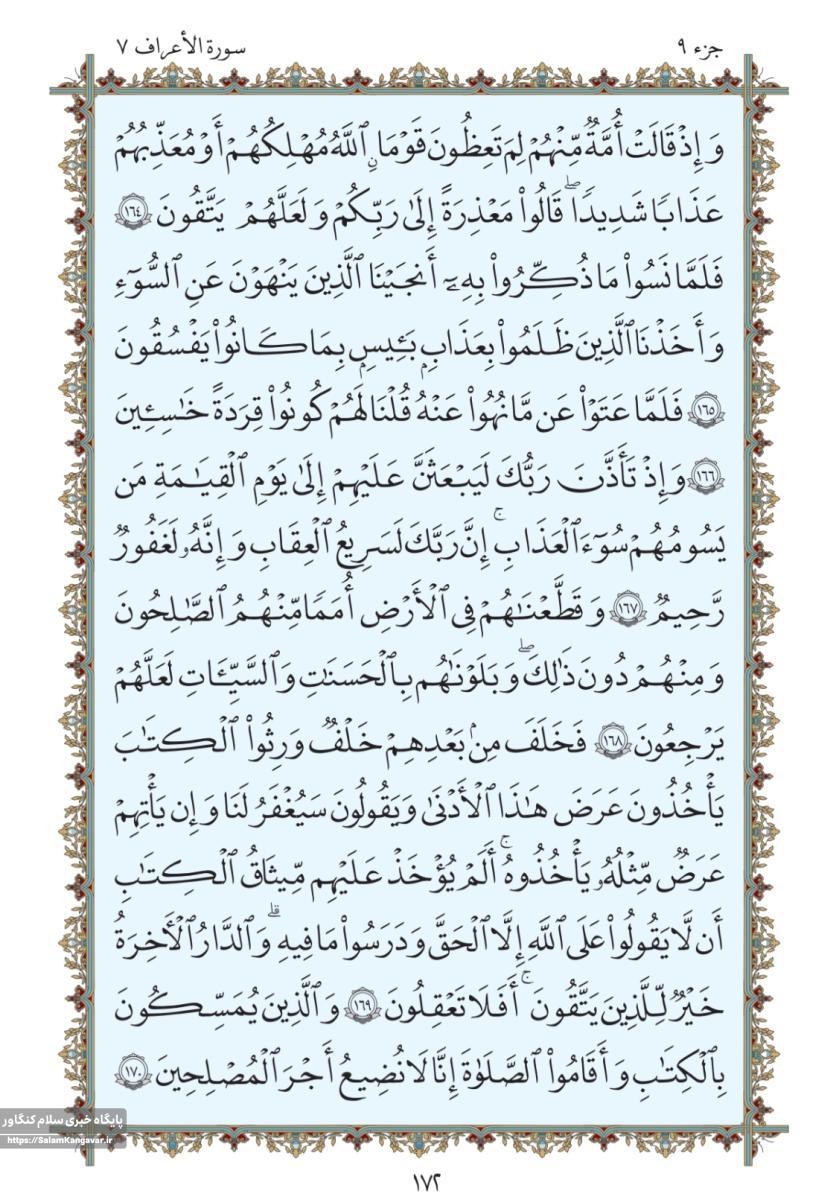 جزء ۹
سورة الأعراف ۷
وَإِذْ قَالَتْ أُمَّةٌ مِّنْهُمْ لِمَ تَعِظُونَ قَوْمًا ٱللَّهُ مُهْلِكُهُمْ أَوْ مُعَذِّبُهُمْ
عَذَابًا شَدِيدًا ۖ قَالُوا۟ مَعْذِرَةً إِلَىٰ رَبِّكُمْ وَلَعَلَّهُمْ يَتَّقُونَ ﴿١٦٤﴾
فَلَمَّا نَسُوا۟ مَا ذُكِّرُوا۟ بِهِۦٓ أَنجَيْنَا ٱلَّذِينَ يَنْهَوْنَ عَنِ ٱلسُّوٓءِ
وَأَخَذْنَا ٱلَّذِينَ ظَلَمُوا۟ بِعَذَابٍۭ بَـِٔيسٍۭ بِمَا كَانُوا۟ يَفْسُقُونَ
﴿١٦٥﴾ فَلَمَّا عَتَوْا۟ عَن مَّا نُهُوا۟ عَنْهُ قُلْنَا لَهُمْ كُونُوا۟ قِرَدَةً خَـٰسِـِٔينَ
﴿١٦٦﴾ وَإِذْ تَأَذَّنَ رَبُّكَ لَيَبْعَثَنَّ عَلَيْهِمْ إِلَىٰ يَوْمِ ٱلْقِيَـٰمَةِ مَن
يَسُومُهُمْ سُوٓءَ ٱلْعَذَابِ ۗ إِنَّ رَبَّكَ لَسَرِيعُ ٱلْعِقَابِ وَإِنَّهُۥ لَغَفُورٌ
رَّحِيمٌ ﴿١٦٧﴾ وَقَطَّعْنَـٰهُمْ فِى ٱلْأَرْضِ أُمَمًا مِّنْهُمُ ٱلصَّـٰلِحُونَ
وَمِنْهُمْ دُونَ ذَٰلِكَ ۖ وَبَلَوْنَـٰهُم بِٱلْحَسَنَـٰتِ وَٱلسَّيِّـَٔاتِ لَعَلَّهُمْ
يَرْجِعُونَ ﴿١٦٨﴾ فَخَلَفَ مِنۢ بَعْدِهِمْ خَلْفٌ وَرِثُوا۟ ٱلْكِتَـٰبَ
يَأْخُذُونَ عَرَضَ هَـٰذَا ٱلْأَدْنَىٰ وَيَقُولُونَ سَيُغْفَرُ لَنَا وَإِن يَأْتِهِمْ
عَرَضٌ مِّثْلُهُۥ يَأْخُذُوهُ ۚ أَلَمْ يُؤْخَذْ عَلَيْهِم مِّيثَـٰقُ ٱلْكِتَـٰبِ
أَن لَّا يَقُولُوا۟ عَلَى ٱللَّهِ إِلَّا ٱلْحَقَّ وَدَرَسُوا۟ مَا فِيهِ ۗ وَٱلدَّارُ ٱلْـَٔاخِرَةُ
خَيْرٌ لِّلَّذِينَ يَتَّقُونَ ۗ أَفَلَا تَعْقِلُونَ ﴿١٦٩﴾ وَٱلَّذِينَ يُمَسِّكُونَ
بِٱلْكِتَـٰبِ وَأَقَامُوا۟ ٱلصَّلَوٰةَ إِنَّا لَا نُضِيعُ أَجْرَ ٱلْمُصْلِحِينَ ﴿١٧٠﴾
پایگاه خبری سلام کنگاور
https://SalamKangavar.ir
۱۷۲